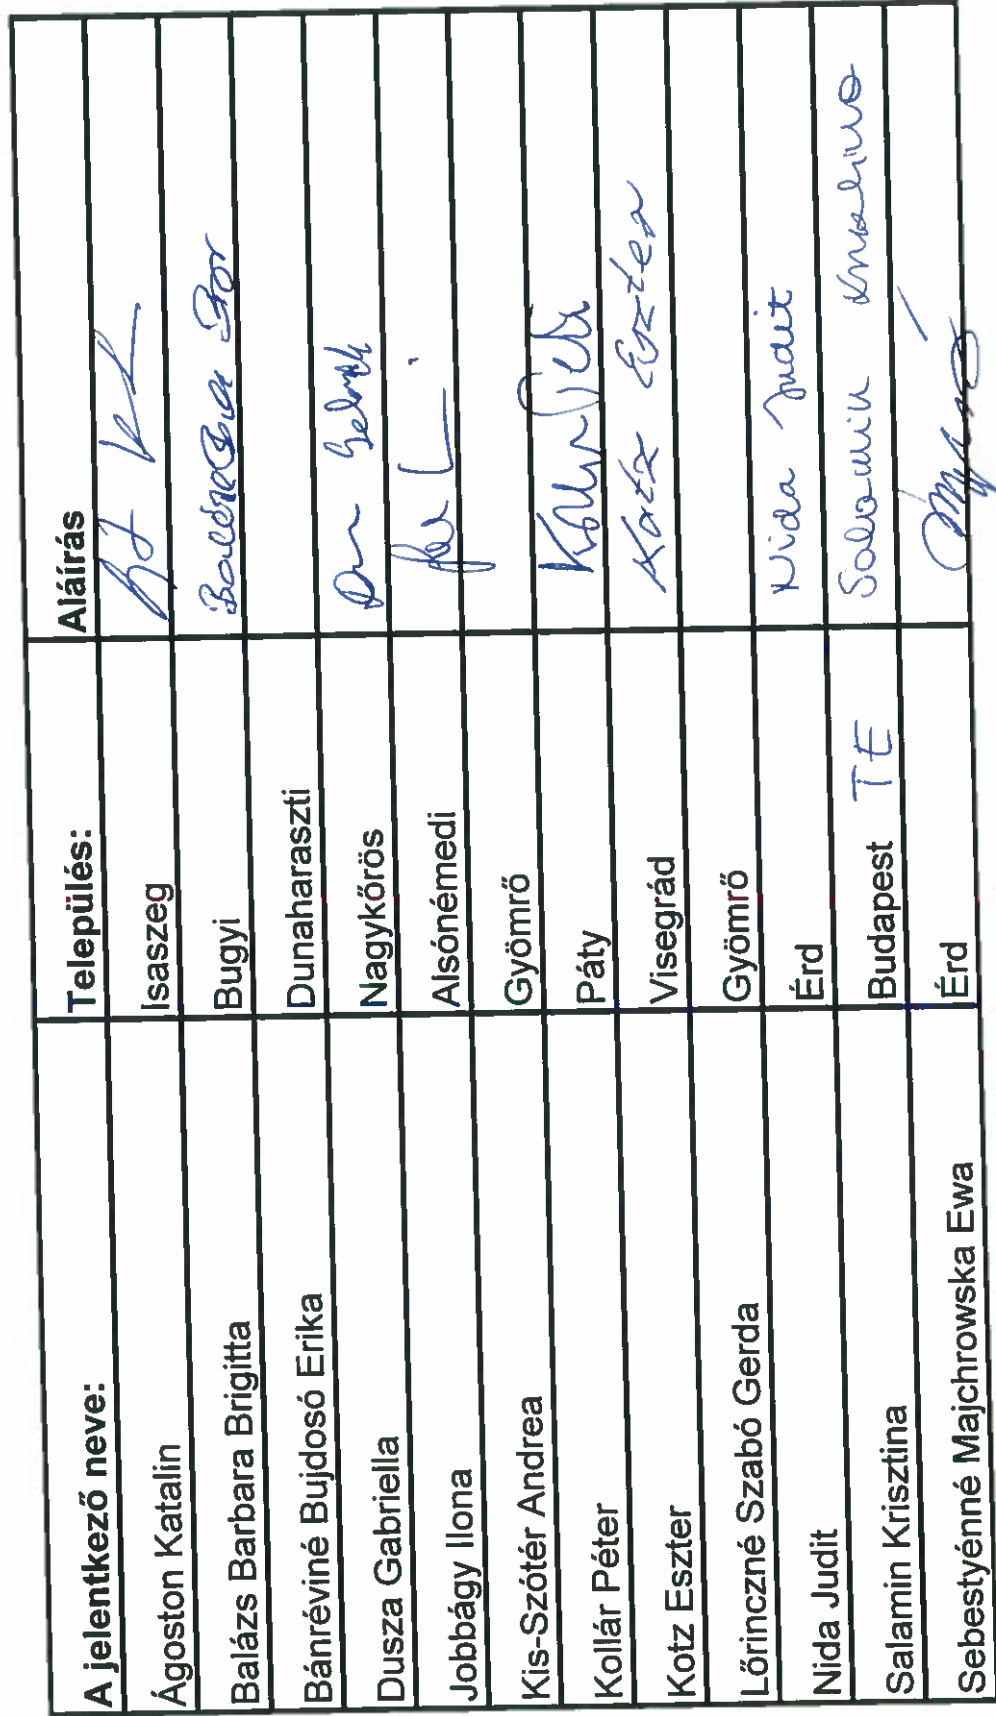 A jelentkező neve: Település: Aláírás
Ágoston Katalin Isaszeg
Balázs Barbara Brigitta Bugyi
Bánréviné Bujdosó Erika Dunaharaszti
Dusza Gabriella Nagykőrös
Jobbágy Ilona Alsónémedi
Kis-Szótér Andrea Gyömrő
Kollár Péter Páty
Kotz Eszter Visegrád Kotz Eszter
Lőrinczné Szabó Gerda Gyömrő
Nida Judit Érd Nida Judit
Salamin Krisztina Budapest TE Salamin Krisztina
Sebestyénné Majchrowska Ewa Érd